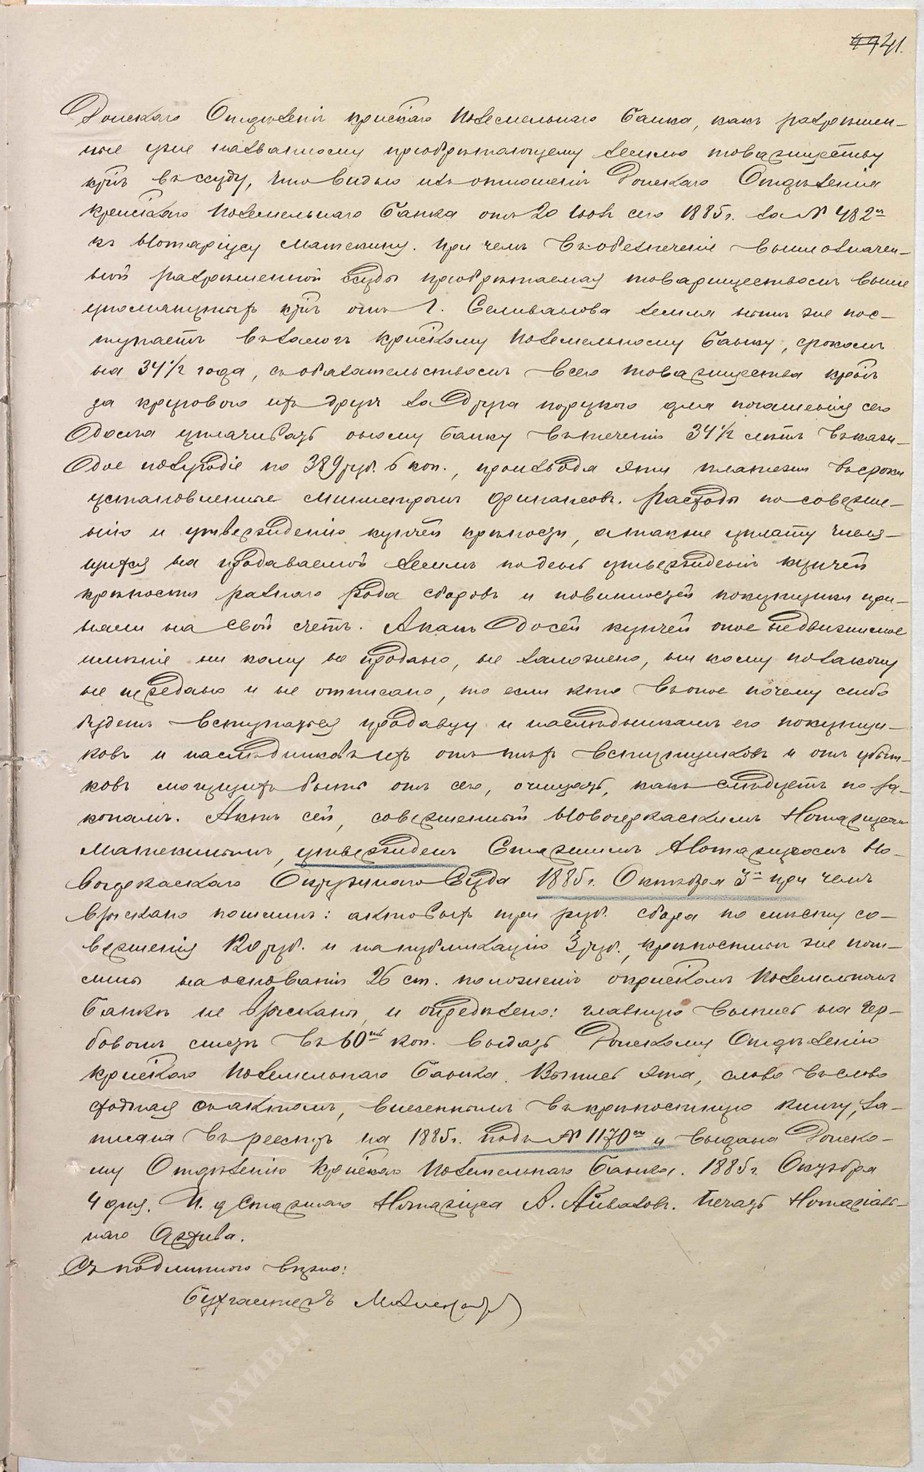 41.
Донскаго Отдѣленія крпскаго Поземельнаго Банка, какъ разрѣшен-
ные уже названному пріобрѣтающему землю товариществу
крнъ въ ссуду, что видно изъ отношенія Донскаго Отдѣленія
крпскаго Поземельнаго Банка отъ 20 Іюня сего 1885 г. за № 482м
къ Нотаріусу Матекину. При чемъ въ обезпеченіе вышеозначен-
ной разрѣшенной ссуды пріобрѣтаемая товариществомъ выше
упомянутыхъ крнъ отъ Г. Селиванова земля нынѣ же пос-
тупаетъ въ залогъ крпскому Поземельному Банку, срокомъ
на 34½ года, съ обязательствомъ всего товарищества крнъ
за круговою ихъ другъ за друга порукою для погашенія сего
долга уплачивать оному банку въ теченіи 34½ лѣтъ въ каж-
дое полугодіе по 389 руб. 6 коп., производя эти платежи въ сроки
установленные министромъ финансовъ. Расходы по соверше-
нію и утвержденію купчей крѣпости, а также уплату числя-
щихся на продаваемой землѣ по день утвержденія купчей
крѣпости разнаго рода сборовъ и повинностей покупщики при-
няли на свой счетъ. А какъ до сей купчей оное недвижимое
имѣніе ни кому не продано, не заложено, ни кому по закону
не передано и не отписано, то если кто въ оное почему либо
будетъ вступаться продавцу и наслѣдникамъ его покупщи-
ковъ и наслѣдниковъ ихъ отъ тѣхъ вступщиковъ и отъ убыт-
ковъ могущихъ быть отъ сего, очищать, какъ слѣдуетъ по за-
конамъ. Актъ сей, совершенный Новочеркаскимъ Нотаріусомъ
Матекинымъ, утвержденъ Старшимъ Нотаріусомъ Но-
вочеркаскаго Окружнаго Суда 1885 г. Октября 3го при чемъ
взыскано пошлинъ: актовыхъ три руб. сбора по мѣсту со-
вершенія руб. и на публикацію 3 руб., крѣпостныя же пош-
лины на основаніи 26 ст. положенія о крпскомъ Поземельномъ
Банкѣ не взысканы, и опредѣлено: главную выпись на гер-
бовомъ листѣ въ 60ть коп. выдать Донскому Отдѣленію
крпскаго Поземельнаго Банка. Выпись эта, слово въ слово
сходная съ актомъ, внесеннымъ въ крѣпостную книгу, за-
писана въ реестръ на 1885 г. подъ № 1170м и выдана Донско-
му Отдѣленію Крпскаго Поземельнаго Банка. 1885 г. Октября
4 дня. И. д. Старшаго Нотаріуса А. Айвазовъ. Печать Нотаріаль-
наго Архива.
Съ подлиннымъ вѣрно:
Бухгалтеръ